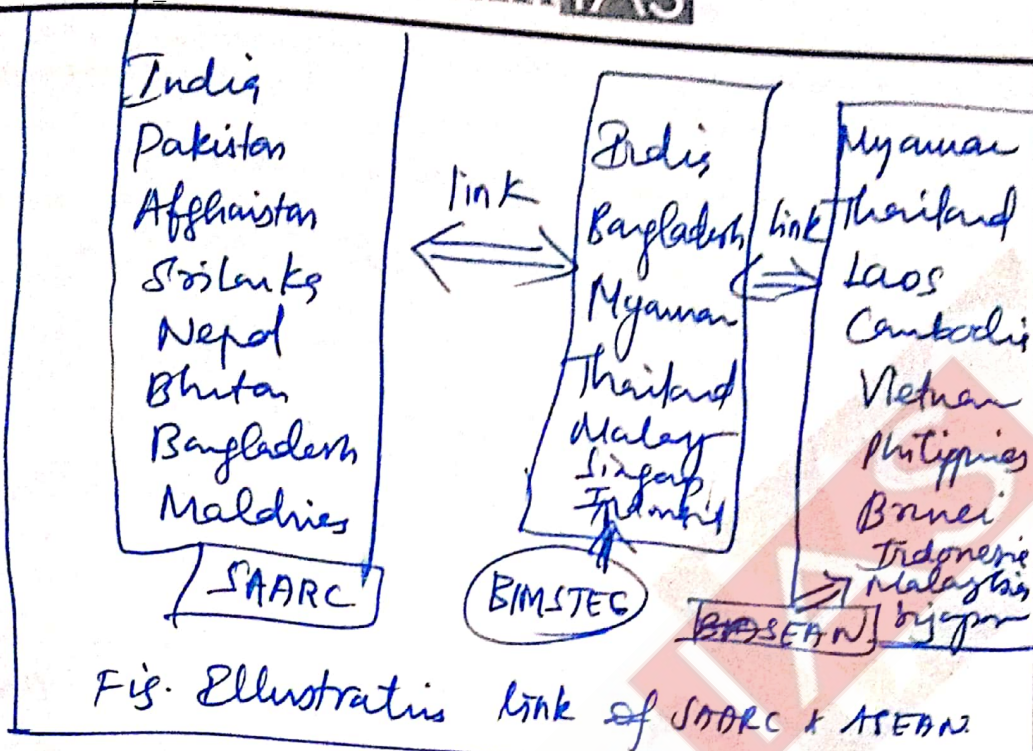 IAS
India
Pakistan
Afghaistan
Srilanka
Nepal
Bhutan
Bangladesh
Maldives
SAARC
link
India
Bangladesh
Myanmar
Thailand
Malay
Singap
Indonesi
BIMSTEC
link
Myanmar
Thailand
Laos
Cambodi
Vietnam
Philippines
Brunei
Indonesie
Malaysia
ASEAN
Fig. Illustratis link of SAARC & ASEAN.
IAS